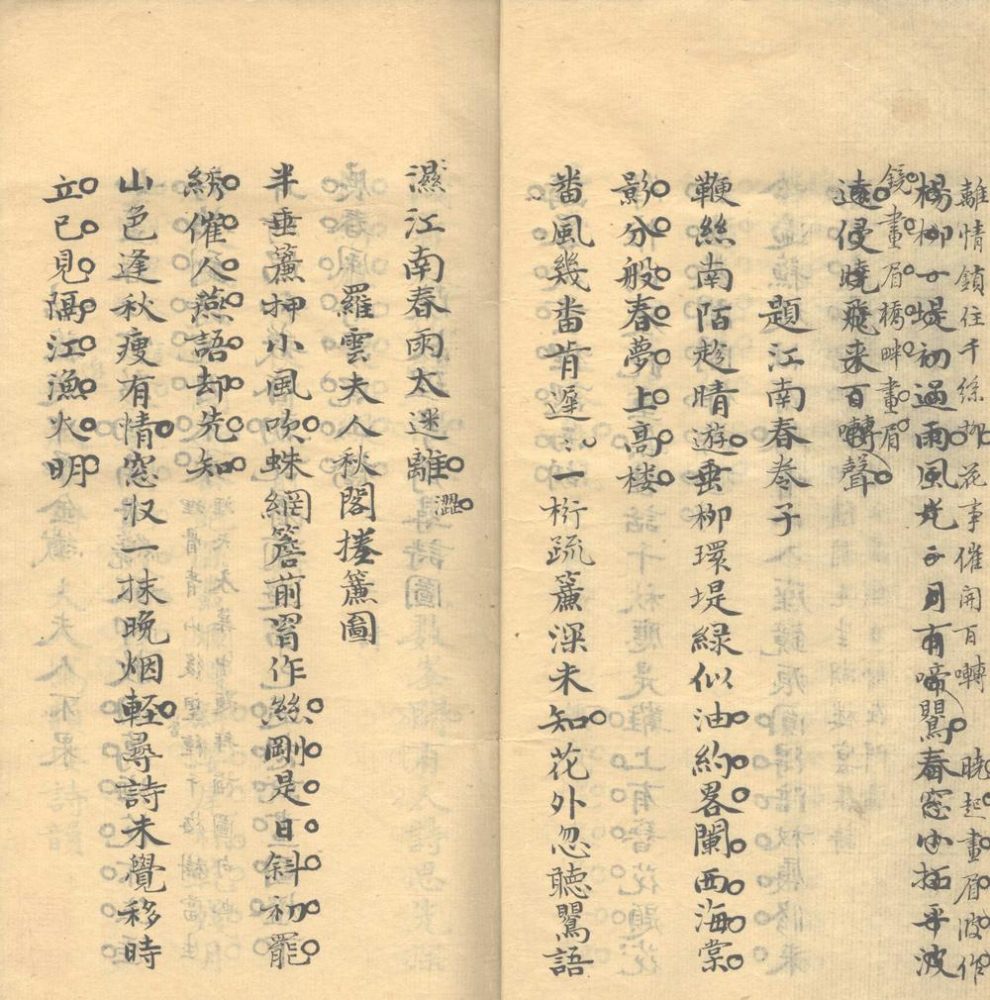 離情鎖住千絲柳花事催開百囀　曉起畫眉波作
楊柳堤初過雨風光二月有啼鸎春窓波
鏡畫眉橋畔畫眉
遠侵曉飛来百囀聲
題江南春卷子
鞭絲南陌趁晴遊垂柳環堤綠似油約畧闌西海棠
影分般春夢上高楼
番風幾番肯遲〻一桁疏簾深未知花外忽聽鸎語
澀
濕江南春雨太迷離
羅雲夫人秋閣捲簾圖
半垂簾押小風吹蛛網簷前罥作絲剛是日斜初罷
綉催人燕語却先知
山色逢秋瘦有情窓收一抹晚烟輕尋詩未覺移時
立已見隔江漁火明